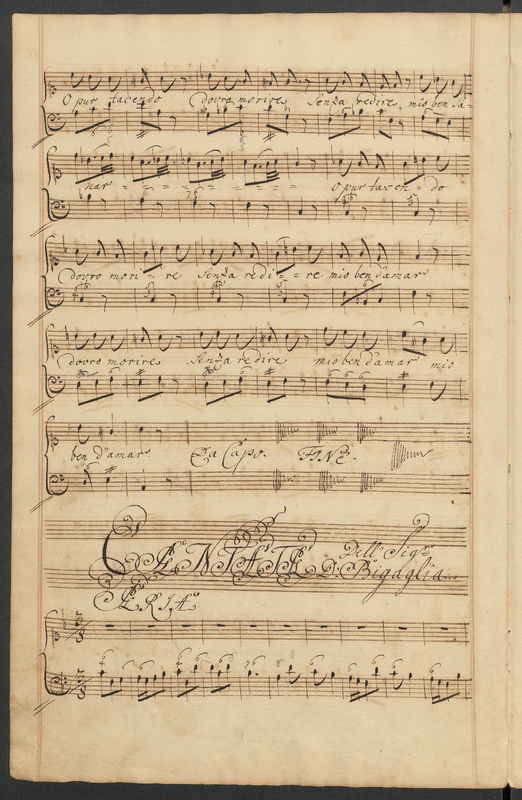 O pur tacendo dovro morire, senza redire, mio ben da
mar O pur tacen - do
dovro mori - re senza redi - re mio ben d'amar
dovro morire, senza redire mio ben d'amar mio
ben d'amar Da Capo. FINE.
CANTATE Dell Sigre
D. Bigaglia
ARIA